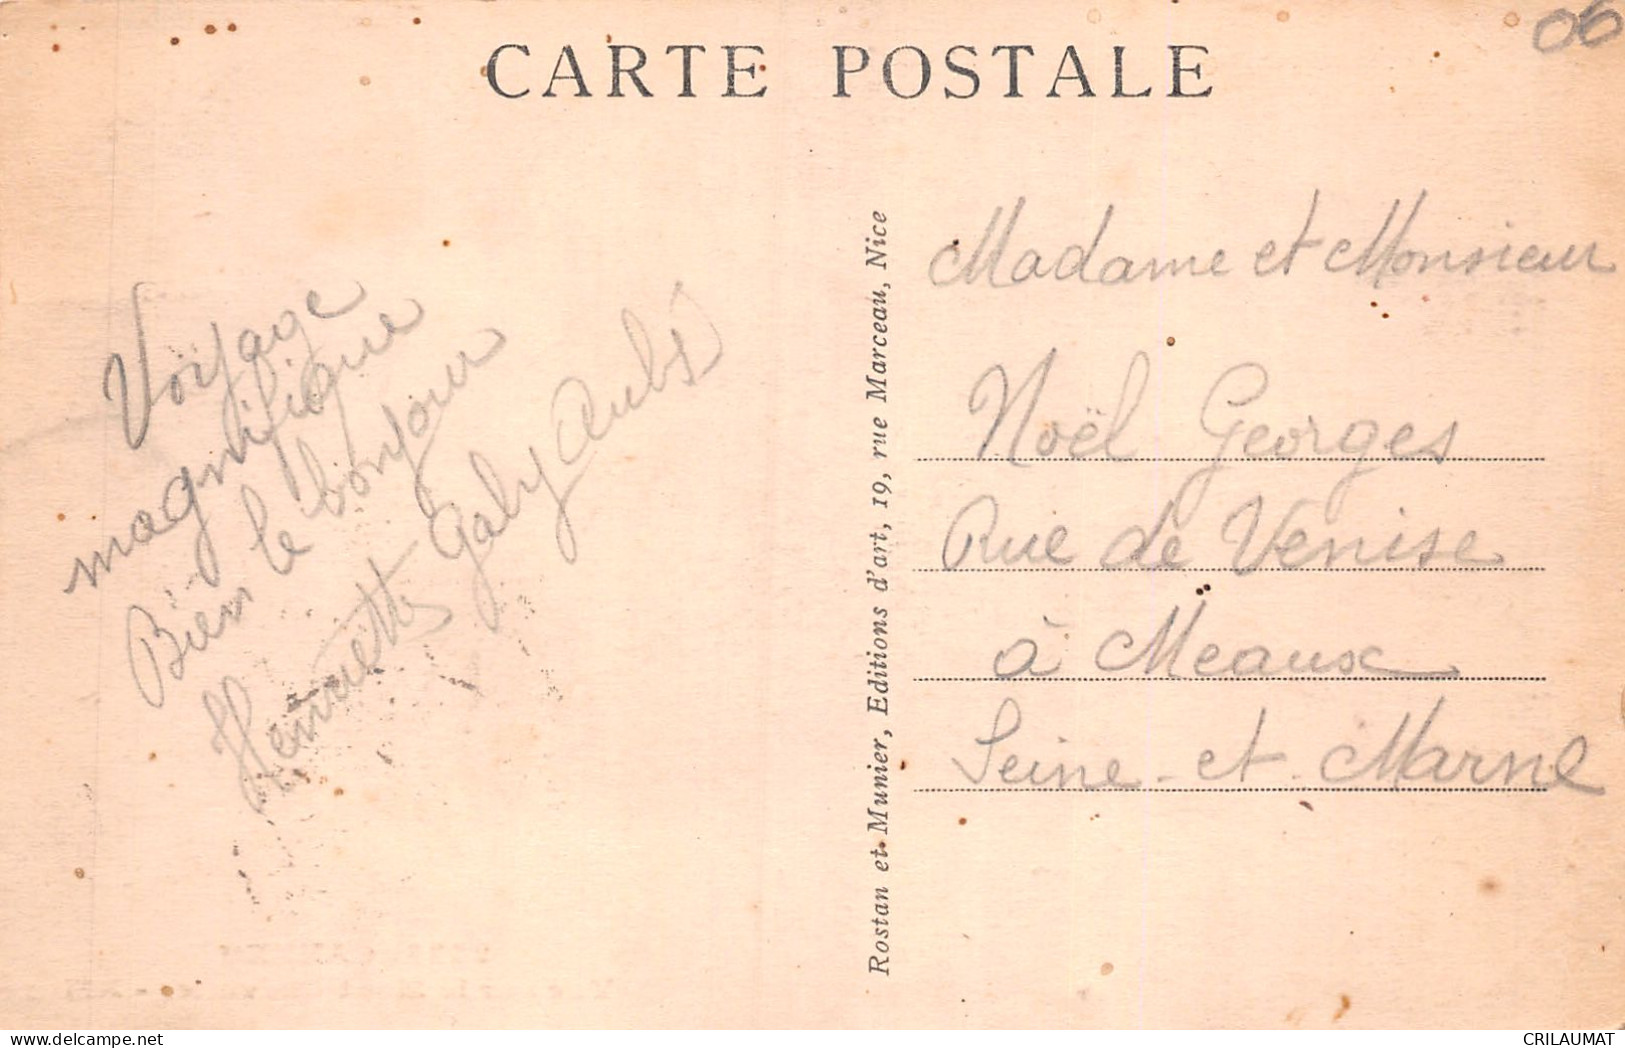 06
CARTE POSTALE
Voyage
magnifique
Bien le bonjour
Henriette Gaby
Rostan et Munier, Editions d'art, 19, rue Marceau, Nice
Madame et Monsieur
Noël Georges
Rue de Venise
à Meaux
Seine-et-Marne
CRILAUMAT